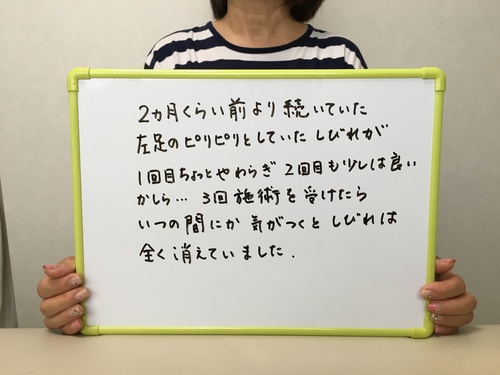 2ヵ月くらい前より続いていた
左足のピリピリとしていたしびれが
1回目ちょっとやわらぎ 2回目も少しは良い
かしら… 3回施術を受けたら
いつの間にか気がつくとしびれは
全く消えていました.